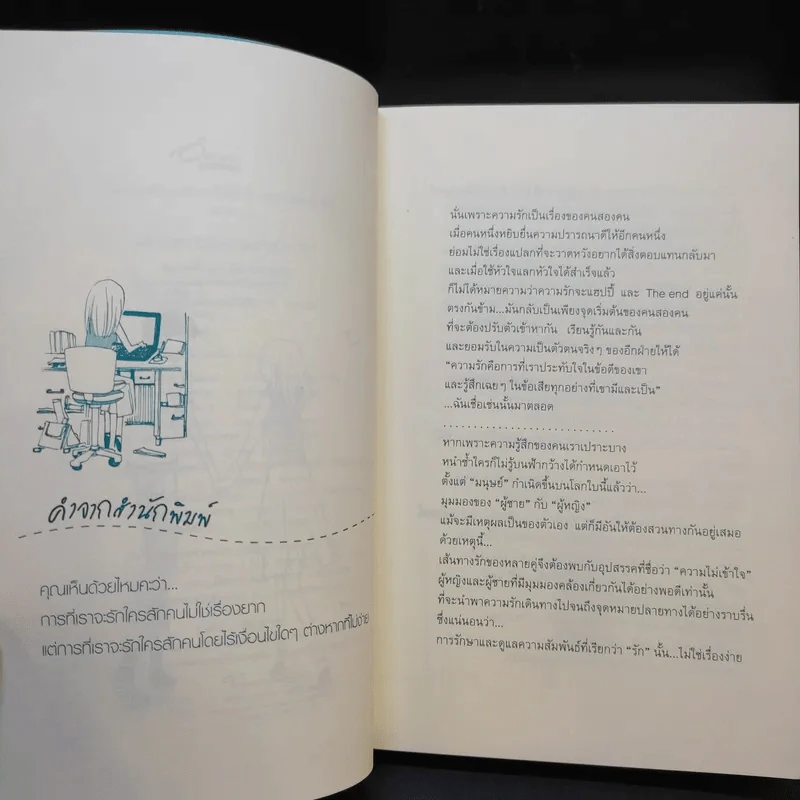 คำจากสำนักพิมพ์
คุณเห็นด้วยไหมคะว่า...
การที่เราจะรักใครสักคนไม่ใช่เรื่องยาก
แต่การที่เราจะรักใครสักคนโดยไร้เงื่อนไขใดๆ ต่างหากที่ไม่ง่าย
นั่นเพราะความรักเป็นเรื่องของคนสองคน
เมื่อคนหนึ่งหยิบยื่นความปรารถนาดีให้อีกคนหนึ่ง
ย่อมไม่ใช่เรื่องแปลกที่จะวาดหวังอยากได้สิ่งตอบแทนกลับมา
และเมื่อใช้หัวใจแลกหัวใจได้สำเร็จแล้ว
ก็ไม่ได้หมายความว่าความรักจะแฮปปี้ และ The end อยู่แค่นั้น
ตรงกันข้าม...มันกลับเป็นเพียงจุดเริ่มต้นของคนสองคน
ที่จะต้องปรับตัวเข้าหากัน เรียนรู้กันและกัน
และยอมรับในความเป็นตัวตนจริงๆ ของอีกฝ่ายให้ได้
“ความรักคือการที่เราประทับใจในข้อดีของเขา
และรู้สึกเฉยๆ ในข้อเสียทุกอย่างที่เขามีและเป็น”
...ฉันเชื่อเช่นนั้นมาตลอด
..........................
หากเพราะความรู้สึกของคนเราเปราะบาง
หนำซ้ำใครก็ไม่รู้บนฟ้ากว้างได้กำหนดเอาไว้
ตั้งแต่ “มนุษย์” กำเนิดขึ้นบนโลกใบนี้แล้วว่า...
มุมมองของ “ผู้ชาย” กับ “ผู้หญิง”
แม้จะมีเหตุผลเป็นของตัวเอง แต่ก็มีอันให้ต้องสวนทางกันอยู่เสมอ
ด้วยเหตุนี้...
เส้นทางรักของหลายคู่จึงต้องพบกับอุปสรรคที่ชื่อว่า “ความไม่เข้าใจ”
ผู้หญิงและผู้ชายที่มีมุมมองคล้องเกี่ยวกันได้อย่างพอดีเท่านั้น
ที่จะนำพาความรักเดินทางไปจนถึงจุดหมายปลายทางได้อย่างราบรื่น
ซึ่งแน่นอนว่า...
การรักษาและดูแลความสัมพันธ์ที่เรียกว่า “รัก” นั้น...ไม่ใช่เรื่องง่าย